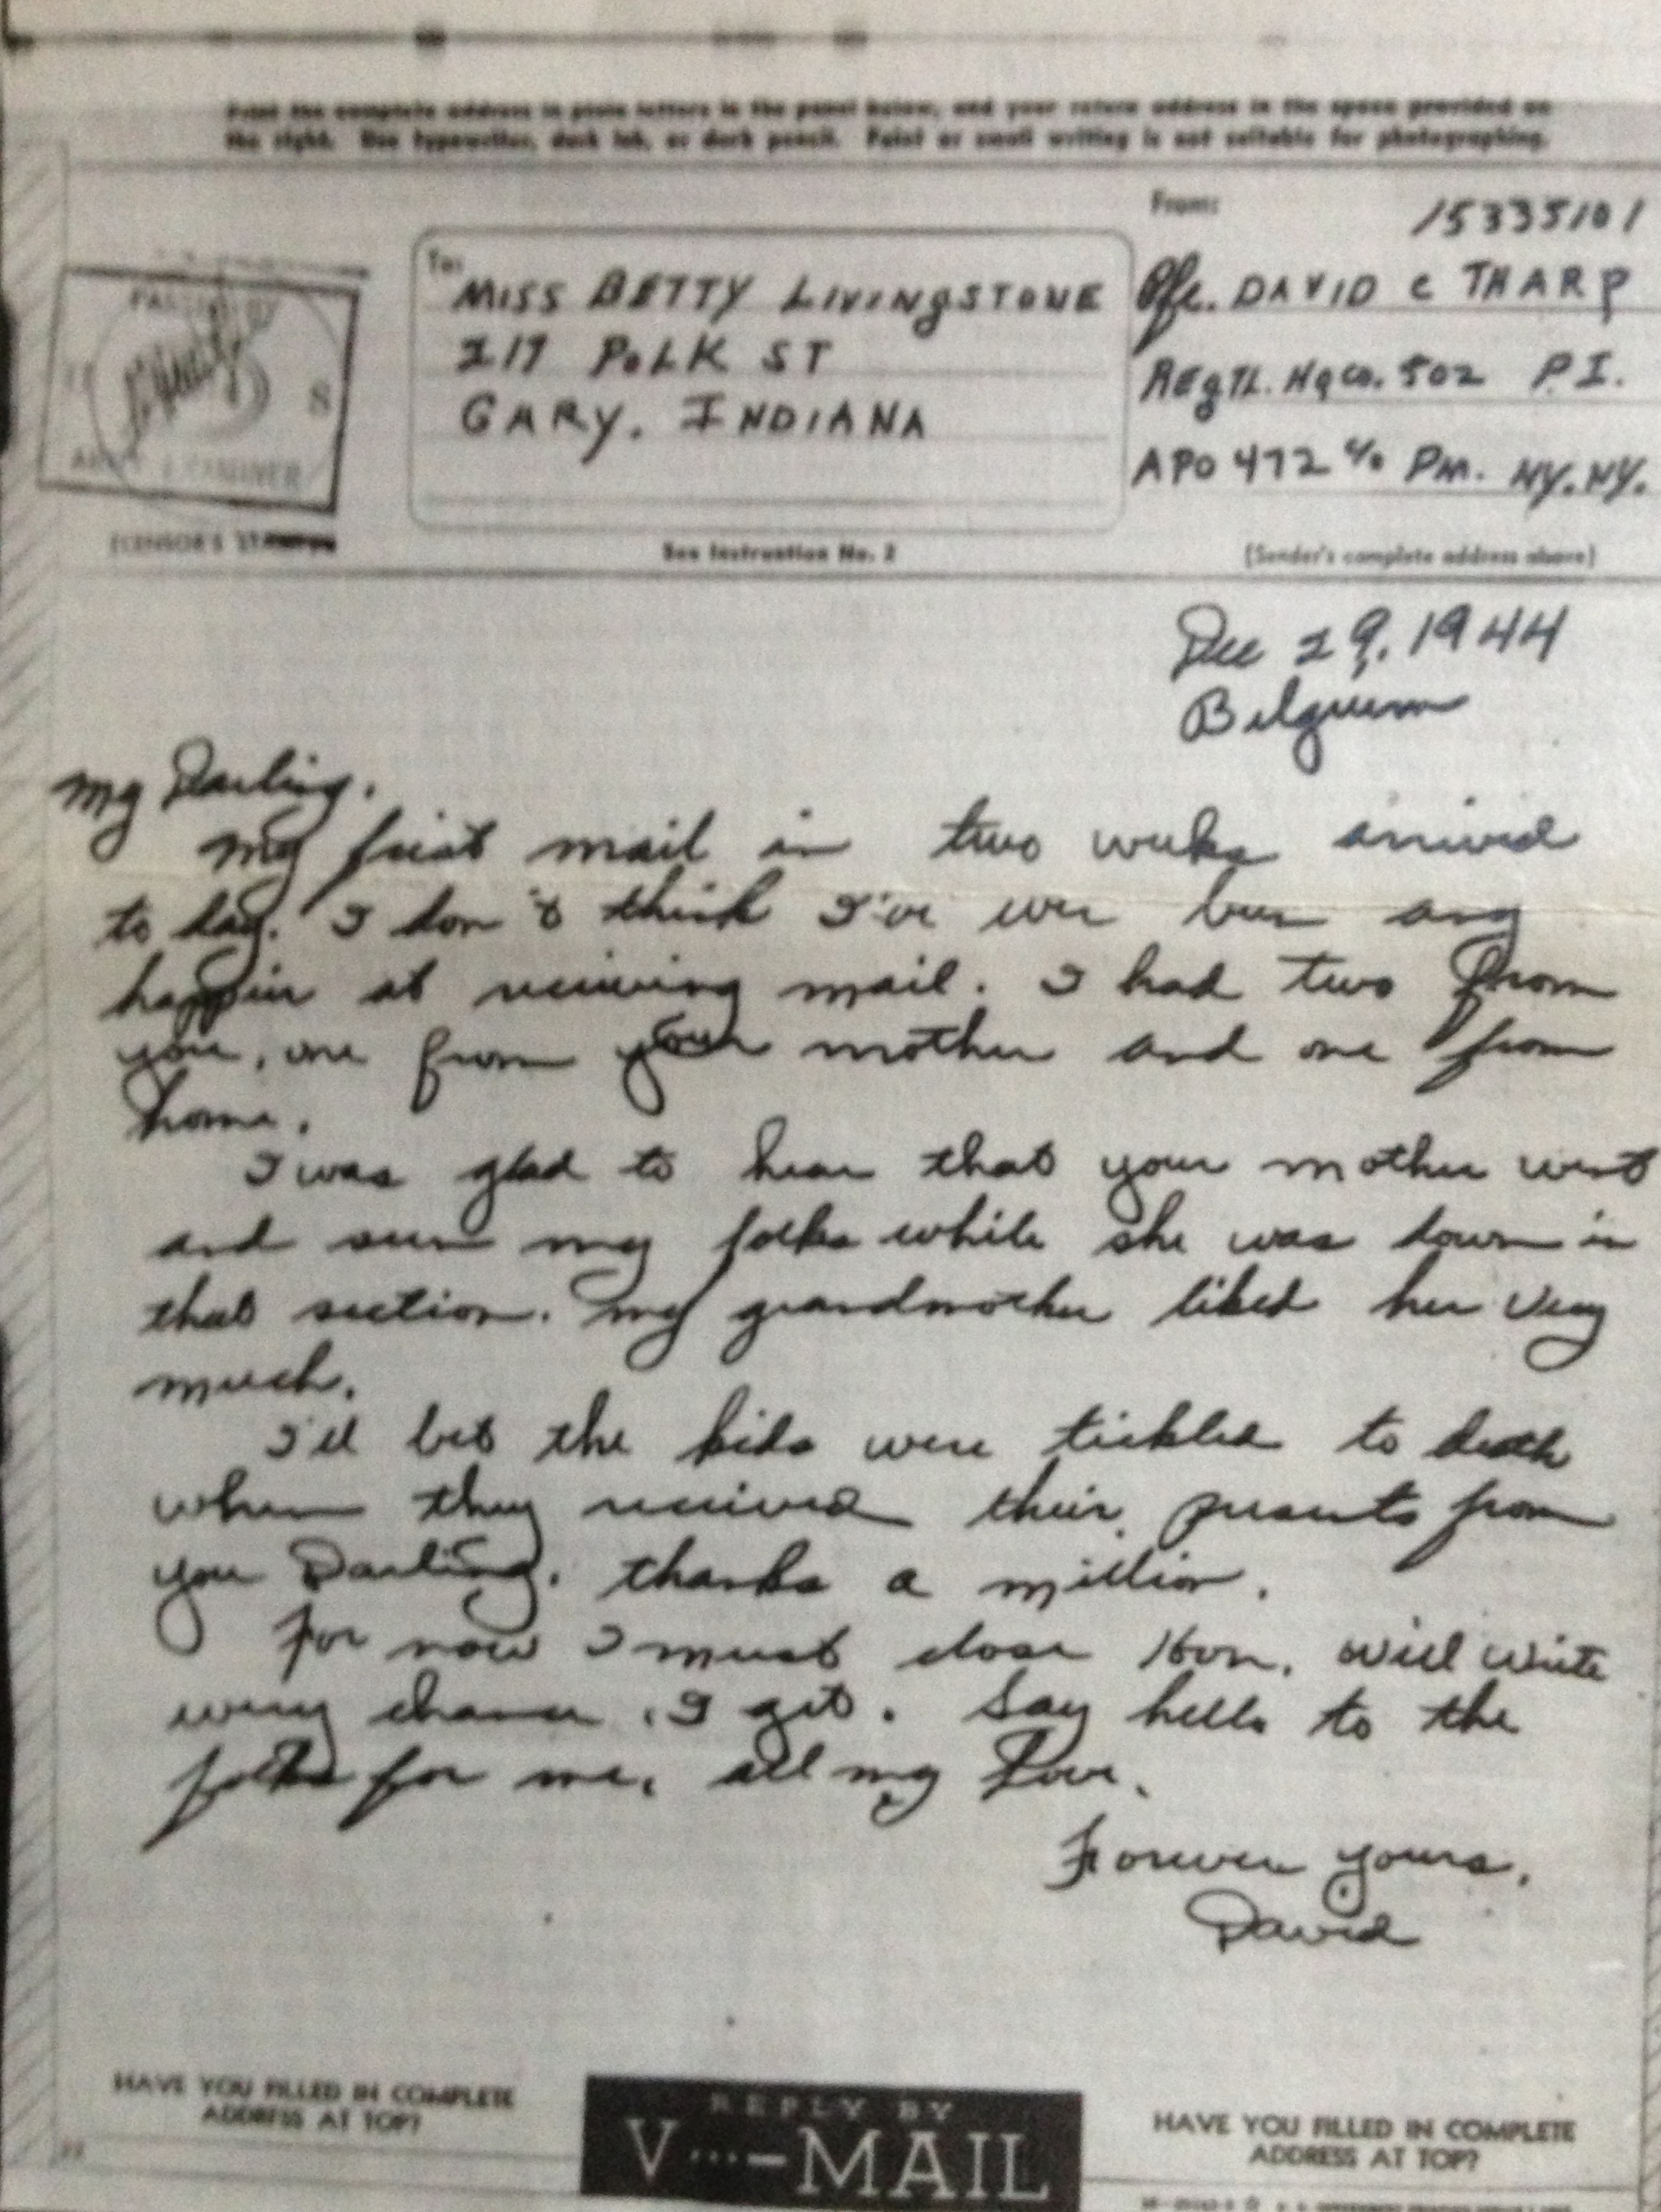 Print the complete address in plain letters in the panel below, and your return address in the space provided on
the right. Use typewriter, dark ink, or dark pencil. Faint or small writing is not suitable for photographing.
From: 15335101
To: MISS BETTY LIVINGSTONE
217 POLK ST
GARY, INDIANA
Pfc. DAVID C THARP
REgTL. Hq co. 502 P.I.
APO 472 c/o PM. NY. NY.
PASSED BY
ARMY EXAMINER
(CENSOR'S STAMP)
See Instruction No. 2
(Sender's complete address above)
Dec 29, 1944
Belguim
My Darling,
My first mail in two weeks arrived
to day. I don't think I've ever been any
happier at receiving mail. I had two from
you, one from your mother and one from
home.
I was glad to hear that your mother went
and seen my folks while she was down in
that section. My grandmother liked her very
much.
I'll bet the kids were tickled to death
when they received their presents from
you Darling. thanks a million.
For now I must close Hon. will write
every chance I get. Say hello to the
folks for me. all my Love.
Forever yours,
David
HAVE YOU FILLED IN COMPLETE
ADDRESS AT TOP?
REPLY BY
V···—MAIL
HAVE YOU FILLED IN COMPLETE
ADDRESS AT TOP?